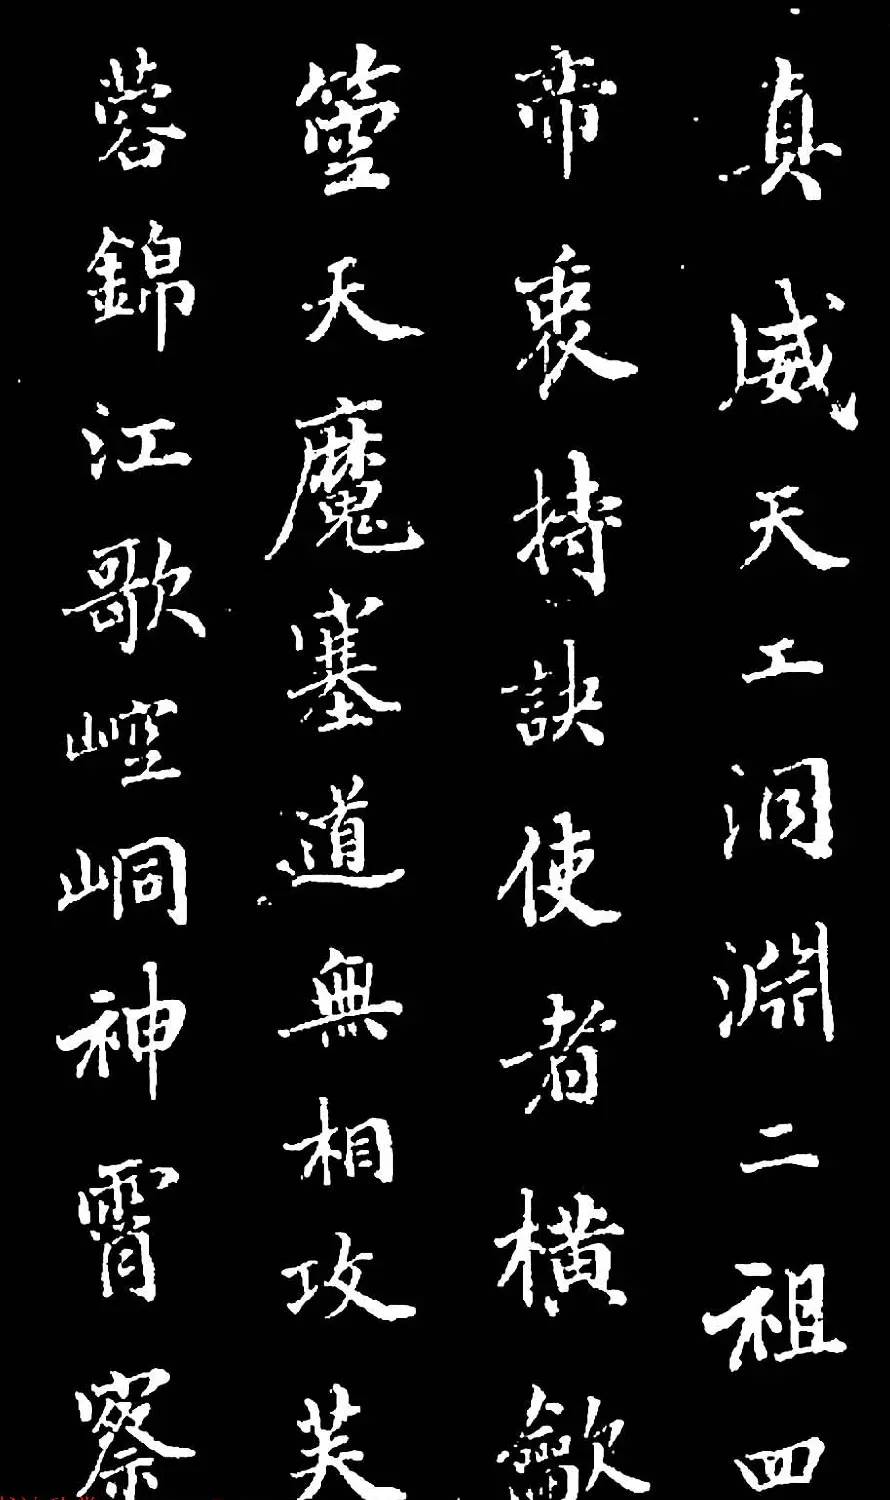 真威天工洞淵二祖四
帝衷持訣使者橫
天魔塞道無相攻芙
蓉錦江歌崆峒神霄察